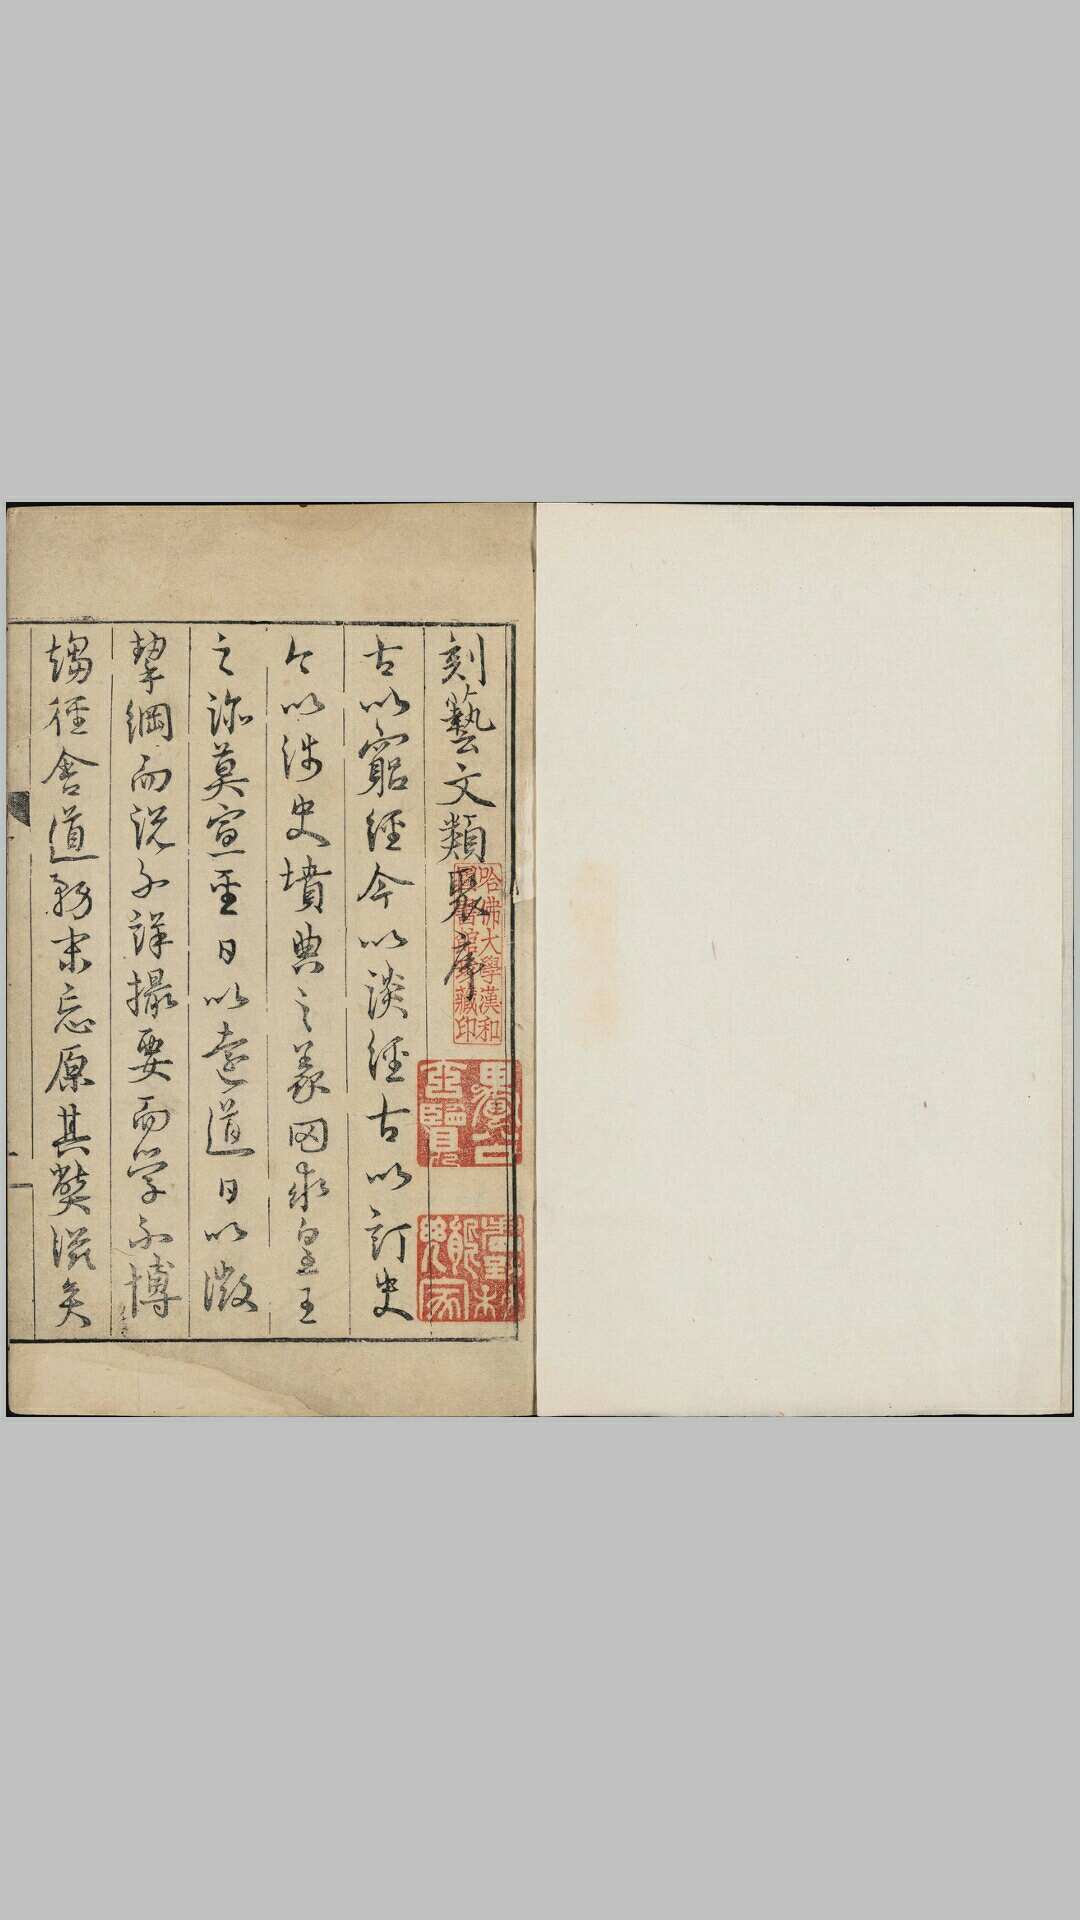 刻藝文類聚序
古以窮經今以談經古以訂史
今以涉史墳典之義罔求皇王
之跡莫宣聖日以遠道日以微
挈綱而說不詳撮要而學不博
趨徑舍道務末忘原其弊滋矣
哈佛大學漢和
圖書館珍藏印